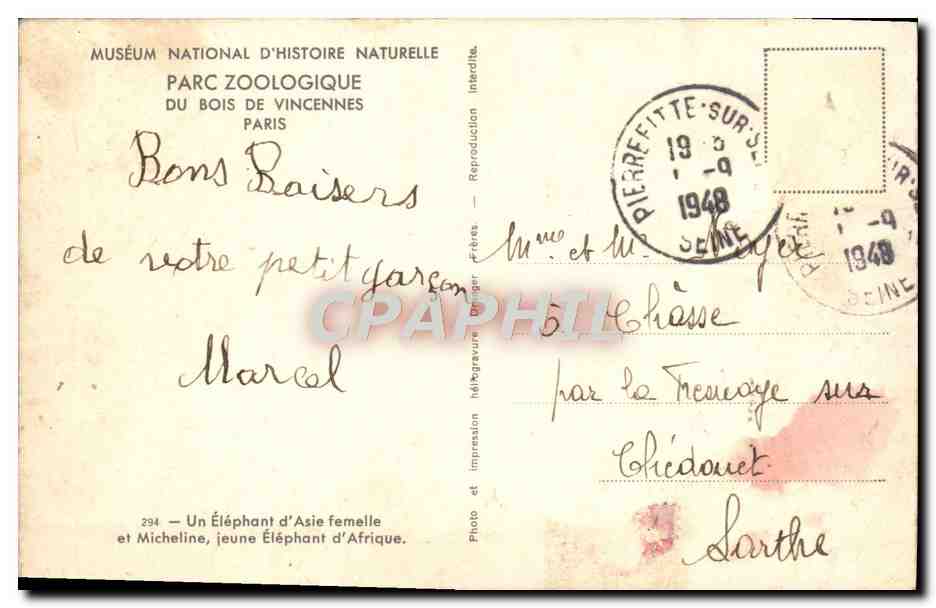 MUSÉUM NATIONAL D'HISTOIRE NATURELLE
PARC ZOOLOGIQUE
DU BOIS DE VINCENNES
PARIS
Bons Baisers
de votre petit garçon
Marcel
294 — Un Éléphant d'Asie femelle
et Micheline, jeune Éléphant d'Afrique.
Photo et impression héliogravure Draeger Frères. — Reproduction interdite.
PIERREFITTE-SUR-SE
1-9
1948
SEINE
-9
1948
SEINE
Mme et M.
à Chàsse
par la Fresnaye sur
Chédouet
Sarthe
CPAPHIL